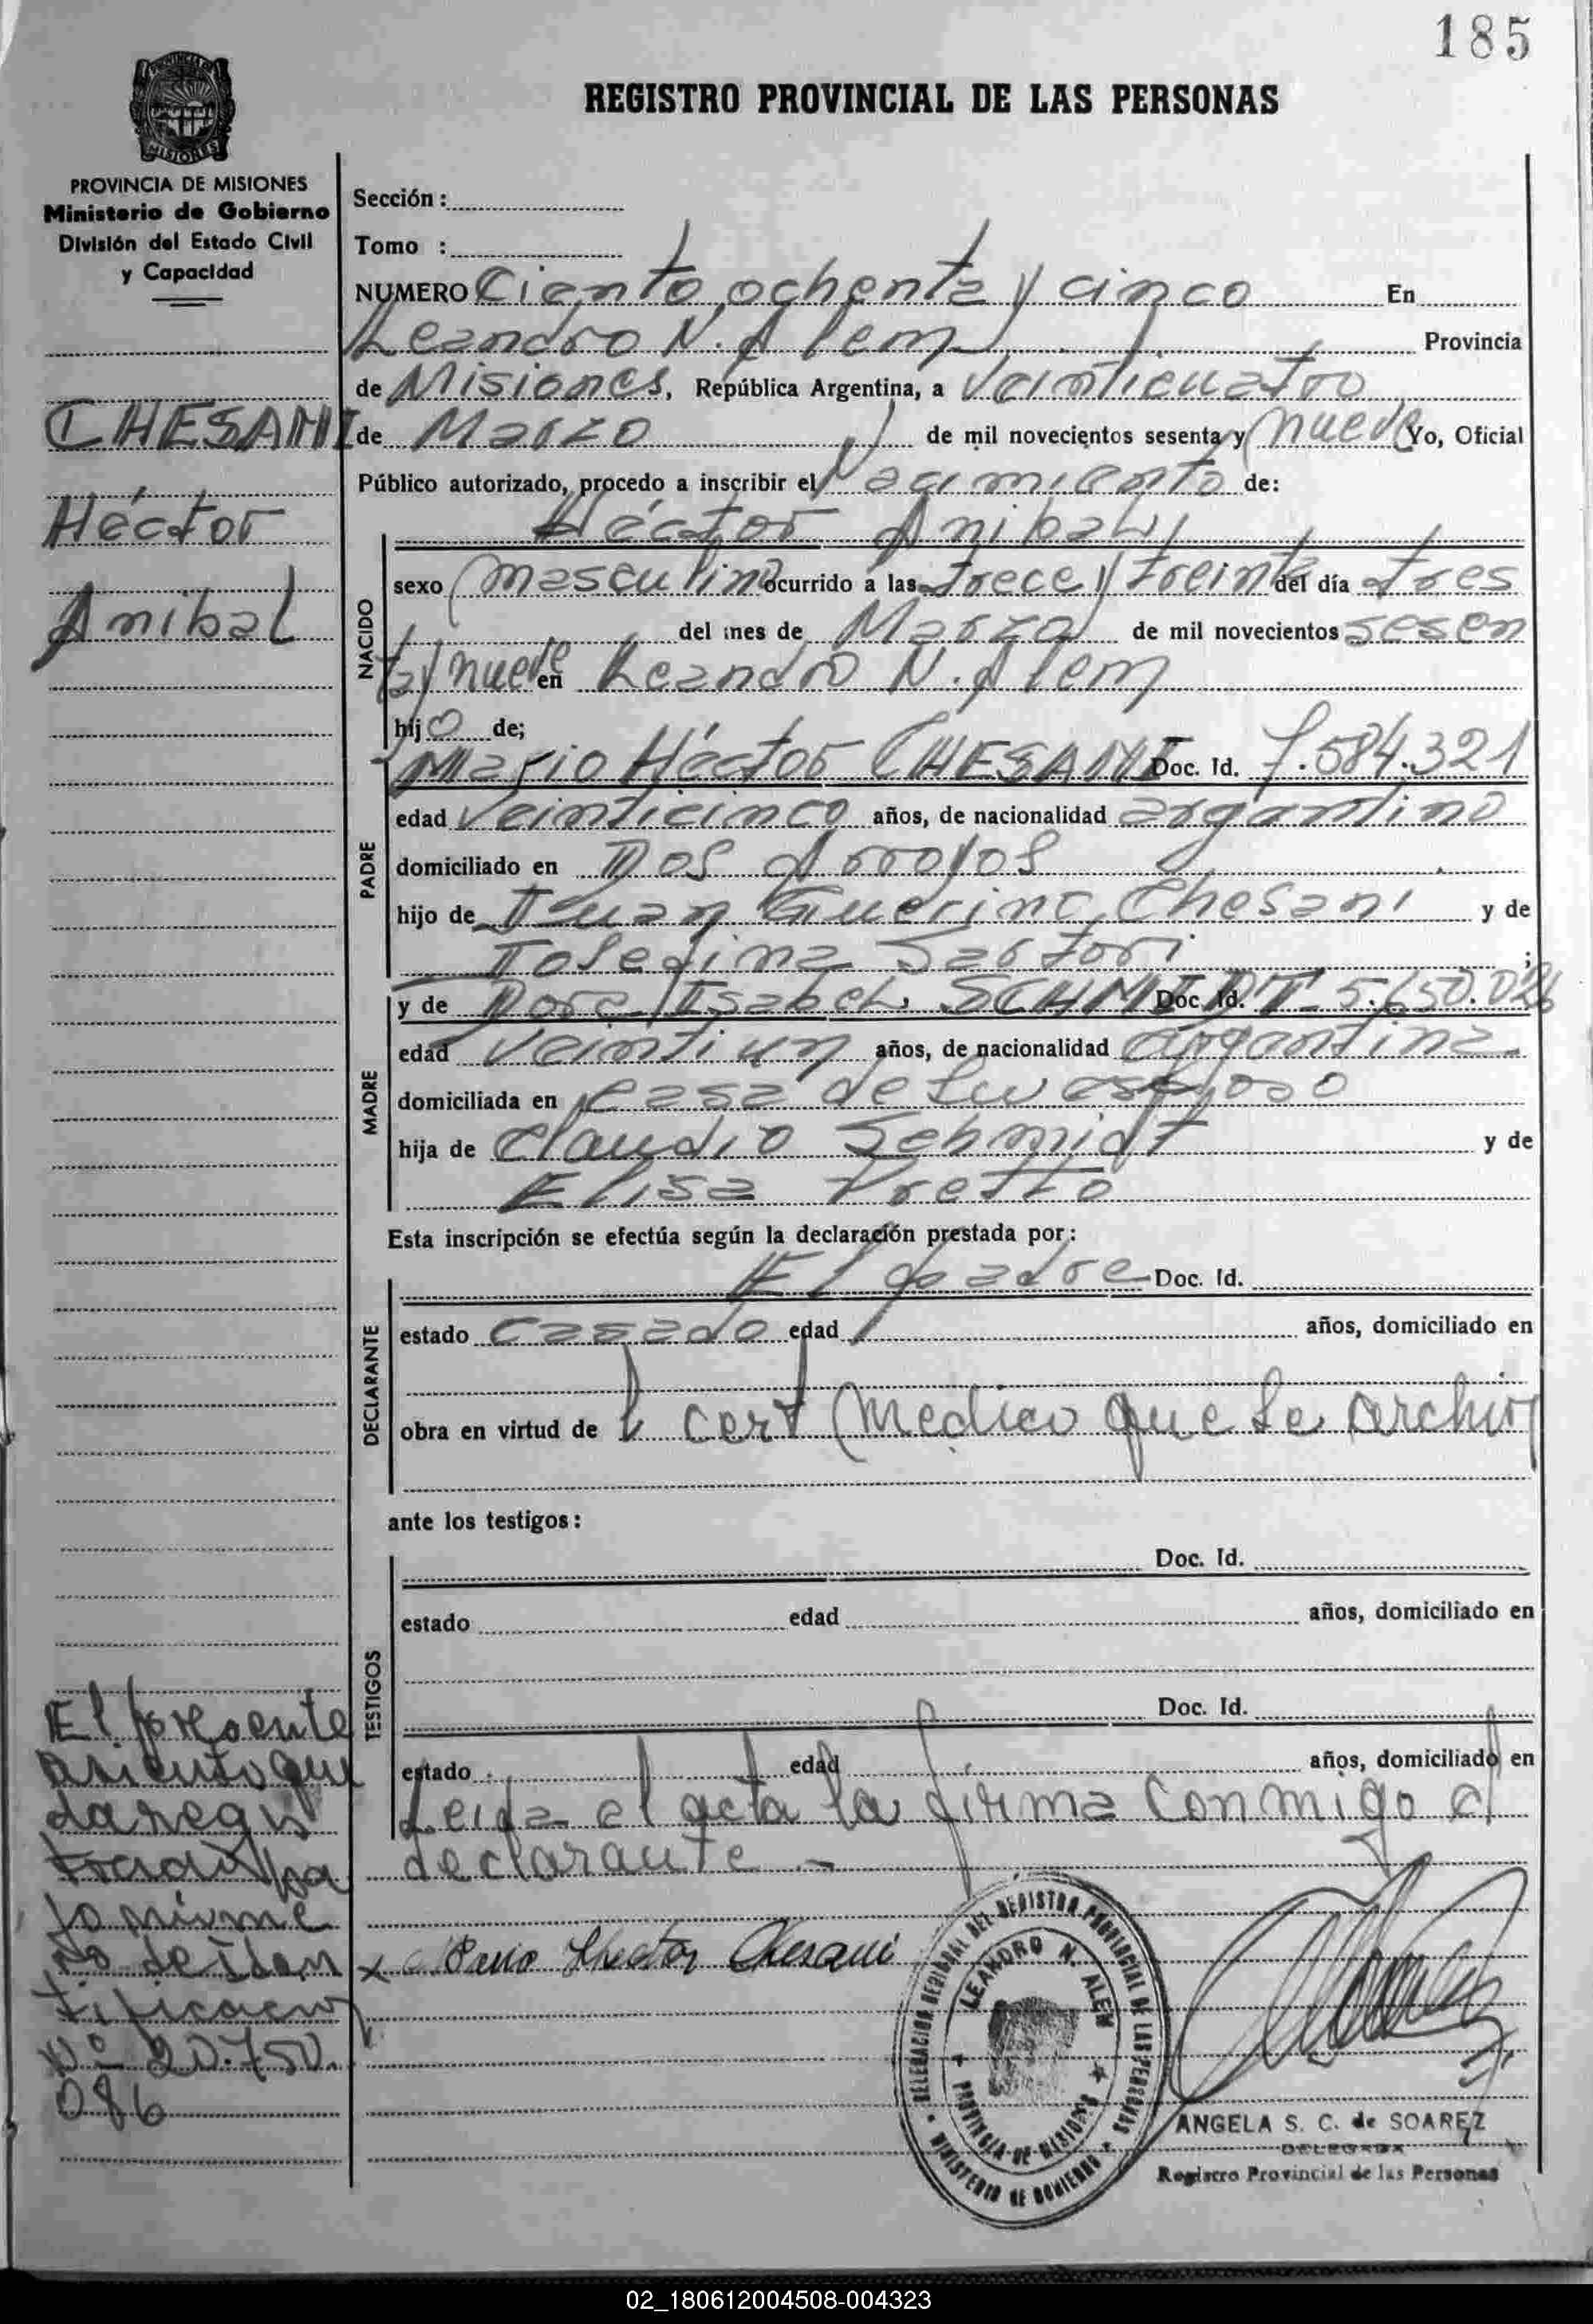 185
REGISTRO PROVINCIAL DE LAS PERSONAS
PROVINCIA DE MISIONES
Ministerio de Gobierno
División del Estado Civil
y Capacidad
CHESANI
Héctor
Anibal
Sección :
Tomo :
NUMERO Ciento ochenta y cinco En
Leandro N. Alem Provincia
de Misiones, República Argentina, a veinticuatro
de Marzo de mil novecientos sesenta y nueve Yo, Oficial
Público autorizado, procedo a inscribir el Nacimiento de:
Héctor Anibal
NACIDO
sexo masculino ocurrido a las trece y treinta del día tres
del mes de Marzo de mil novecientos sesen
ta y nueve en Leandro N. Alem
hijo de;
PADRE
Mario Héctor CHESANI Doc. Id. 7.584.321
edad veinticinco años, de nacionalidad argentino
domiciliado en Dos Arroyos
hijo de Juan Guerino Chesani y de
Josefina Sartori ;
MADRE
y de Dora Isabel SCHMIDT Doc. Id. 5.650.026
edad veintiun años, de nacionalidad argentina
domiciliada en casa de su esposo
hija de Claudio Schmidt y de
Elisa Pretto
Esta inscripción se efectúa según la declaración prestada por:
DECLARANTE
El padre Doc. Id.
estado casado edad años, domiciliado en
obra en virtud de cert medico que se archiv
ante los testigos:
TESTIGOS
Doc. Id.
estado edad años, domiciliado en
Doc. Id.
estado edad años, domiciliado en
Leida el acta la firma conmigo el
declarante -
x Mario Hector Chesani
El presente
asiento que
da regis
trado ba
jo núme
ro de Iden
tificacion
Nº 20.750.
086
DELEGACION REGIONAL DEL REGISTRO PROVINCIAL DE LAS PERSONAS
MINISTERIO DE GOBIERNO
LEANDRO N. ALEM
PROVINCIA DE MISIONES
ANGELA S. C. de SOAREZ
DELEGADA
Registro Provincial de las Personas
02_180612004508-004323